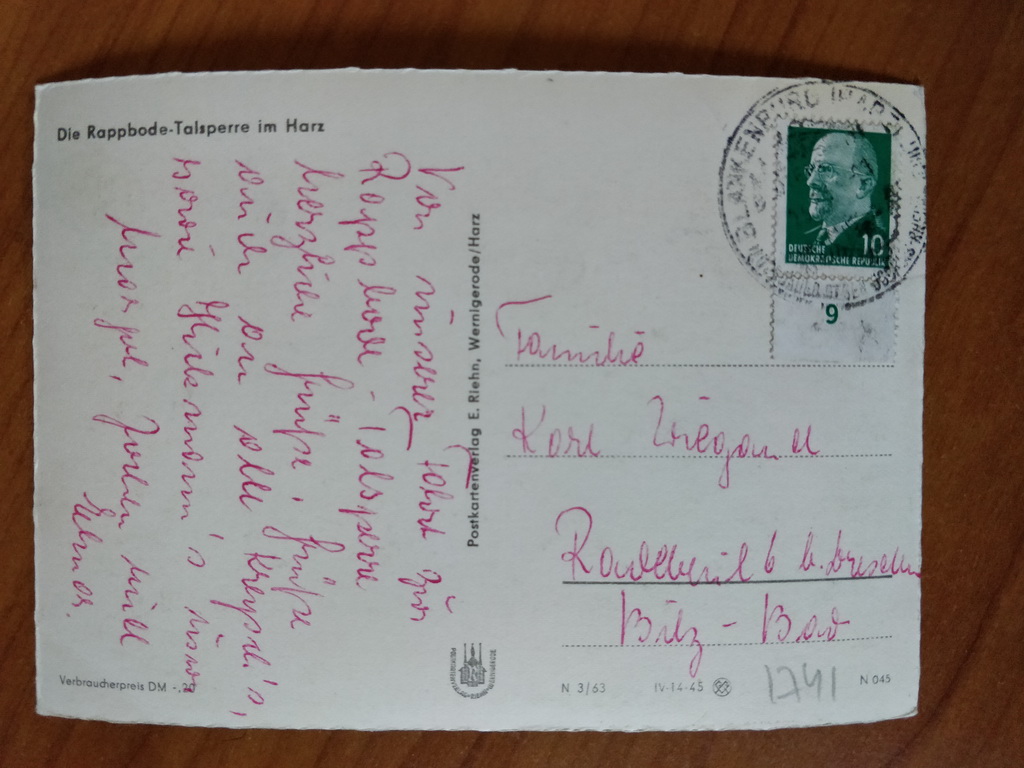 Die Rappbode-Talsperre im Harz
Von unserer Fahrt zur
Rappbode-Talsperre
herzliche Grüße, Grüße
auch an alle
Margot, Jochen und
Elmar.
Verbraucherpreis DM -,
Postkartenverlag E. Riehn, Wernigerode/Harz
BLANKENBURG (HARZ)
DEUTSCHE 10
DEMOKRATISCHE REPUBLIK
9
Familie
Karl Wiegand
Radebeul 6 b. Dresden
Bilz-Bad
N 3/63 IV-14-45 N 045
1741